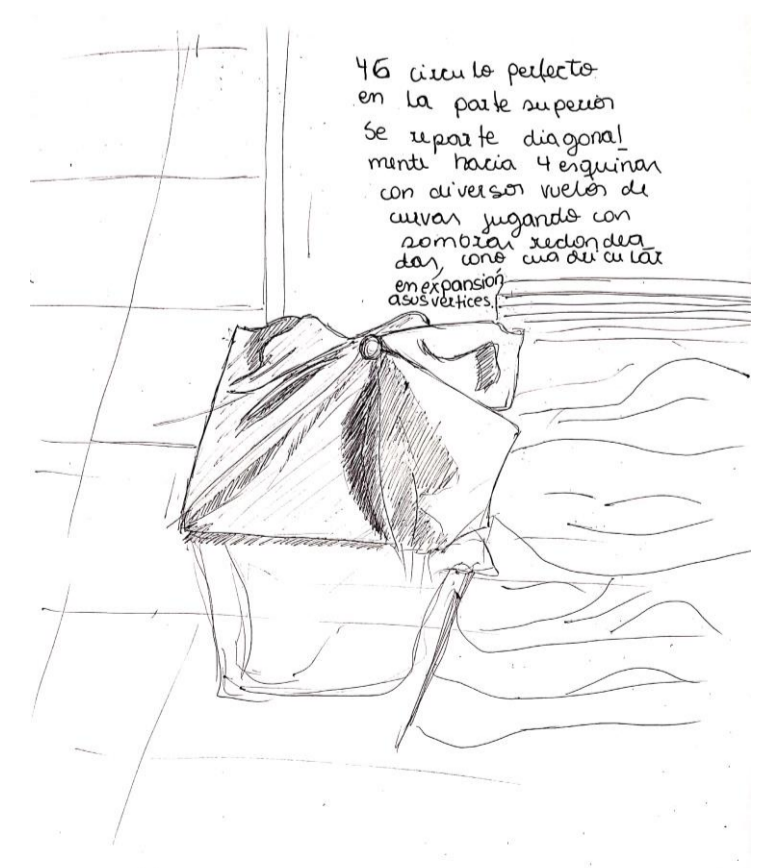 46 circulo perfecto
en la parte superior
se reparte diagonal
mente hacia 4 esquinas
con diversos vuelos de
curvas jugando con
sombras redondea
das, cono cuadricular
en expansión
a sus vertices.